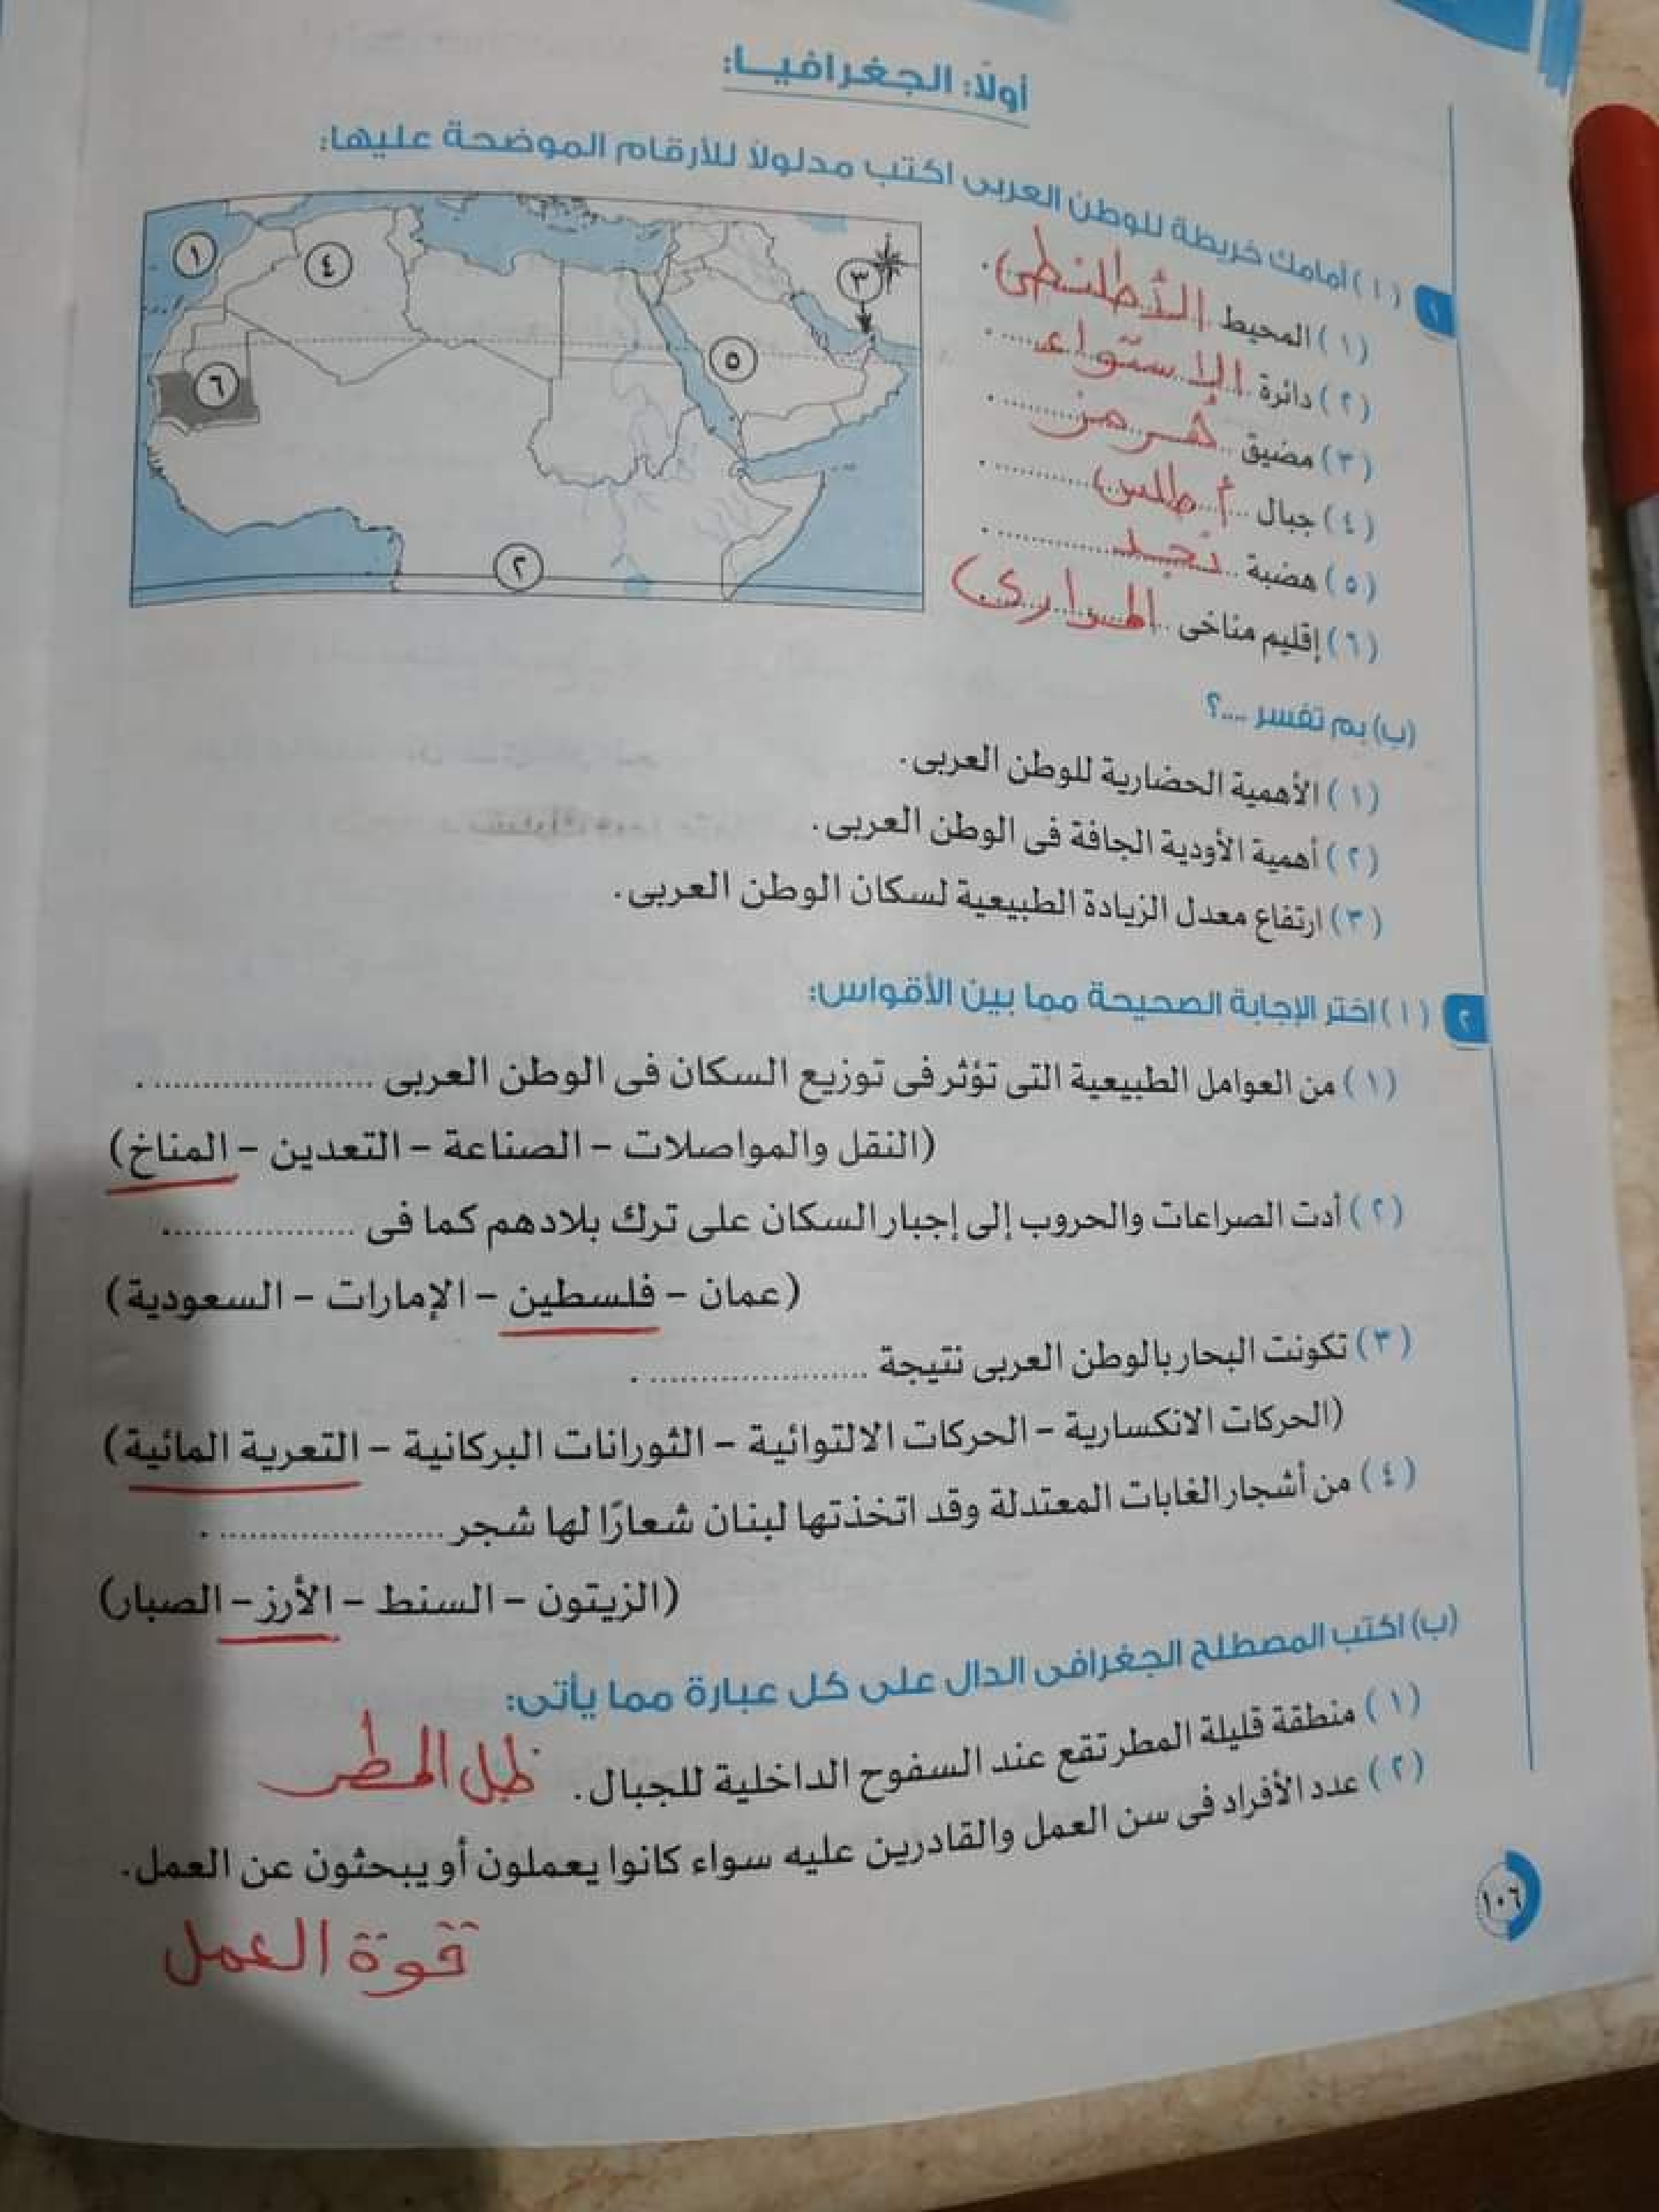 أولًا: الجغرافيا:
١ (١) أمامك خريطة للوطن العربى اكتب مدلولًا للأرقام الموضحة عليها:
(١) المحيط الأطلنطى.
(٢) دائرة الإستواء.
(٣) مضيق هُرمز.
(٤) جبال أطلس.
(٥) هضبة نجد.
(٦) إقليم مناخى المدارى.
١
٤
٣
٥
٦
٢
(ب) بم تفسر ....؟
(١) الأهمية الحضارية للوطن العربى.
(٢) أهمية الأودية الجافة فى الوطن العربى.
(٣) ارتفاع معدل الزيادة الطبيعية لسكان الوطن العربى.
٢ (١) اختر الإجابة الصحيحة مما بين الأقواس:
(١) من العوامل الطبيعية التى تؤثر فى توزيع السكان فى الوطن العربى ..................... .
(النقل والمواصلات – الصناعة – التعدين – المناخ)
(٢) أدت الصراعات والحروب إلى إجبار السكان على ترك بلادهم كما فى ...................
(عمان – فلسطين – الإمارات – السعودية)
(٣) تكونت البحار بالوطن العربى نتيجة ..................... .
(الحركات الانكسارية – الحركات الالتوائية – الثورانات البركانية – التعرية المائية)
(٤) من أشجار الغابات المعتدلة وقد اتخذتها لبنان شعارًا لها شجر ..................... .
(الزيتون – السنط – الأرز – الصبار)
(ب) اكتب المصطلح الجغرافى الدال على كل عبارة مما يأتى:
(١) منطقة قليلة المطر تقع عند السفوح الداخلية للجبال. ظل المطر
(٢) عدد الأفراد فى سن العمل والقادرين عليه سواء كانوا يعملون أو يبحثون عن العمل.
قوة العمل
١٠٦